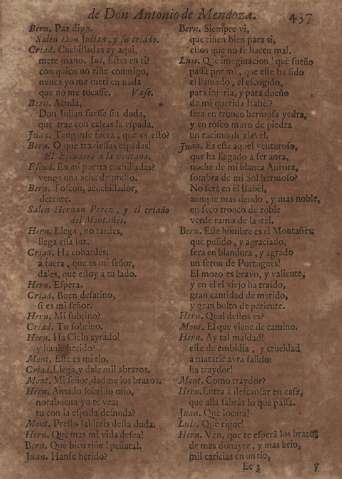 de Don Antonio de Mendoza. 437
Bern. Paz digo.
Salen Don Iuan, y su criado.
Criad. Cuchilladas ay aqui,
mete mano. Iua. Estàs en ti?
con quien no riñe conmigo,
nunca yo me meti en nada
que no me tocasse. Vase.
Bern. Acuda,
Don Iulian fuesse sin duda,
que traz con calças la espada.
Juan. Tenganse fuera, que es esto?
Bern. O que traviessas espadas!
El Escudero a la ventana.
Escud. En mi puerta cuchilladas?
Bern. Yo soy, acuchillador,
detente.
Salen Hernan Perez, y el criado
del Montañes.
Hern. Llega, no tardes,
llega essa luz.
Criad. Ha cobardes,
a fuera, que es mi señor,
dales, que estoy a tu lado.
Hern. Espera.
Criad. Buen desatino,
si es mi señor.
Hern. Mi sobrino?
Criad. Tu sobrino.
Hern. Ha Cielo ayrado!
y hanle herido?
Mont. Este es mi tio.
Criad. Llega, y dale mil abrazos.
Mont. Mi señor, dadme los brazos.
Hern. Amado sobrino mio,
tu con la espada desnuda?
Mont. Presto saldràs desta duda.
Hern. Què mas mi vida desea?
Bern. Que bizarro! peñatal.
Juan. Hanse herido?
Bern. Siempre vi,
que riñen bien para si,
ellos que no se hacen mal.
Luis. Que imaginacion! que sueño
passa por mi, que este ha sido
el llamado, el escogido,
para injuria, y para dueño
de mi querida Isabel?
serà en tronco hermosa yedra,
y en tosco muro de piedra
un racimo de alcel.
Juan. Es este aquel venturoso,
que ha llegado a ser aora,
noche de mi blanca Aurora,
sombra de mi Sol hermoso?
No serà en èl Isabel,
aunque mas desdè, y mas noble,
en seco tronco de roble
verde rama de laurel.
Bern. Este hombre es el Montañes;
que pulido, y agraciado,
serà en blandura, y agrado
un fieros de Portugues!
El mozo es bravo, y valiente,
y en el el viejo ha traido,
gran cantidad de marido,
y gran bulto de pariente.
Hern. Qual dellos es?
Mont. El que viene de camino.
Hern. Ay tal maldad!
este de embidia, y crueldad
a matarle avrà salido:
ha traydor!
Mont. Como traydor?
Hern. Entra a descansar en casa,
que allà sabràs lo que passa.
Juan. Que locura!
Luis. Que rigor!
Hern. Ven, que te esperà los brazos
de mas donayre, y mas brio,
mil caricias en un tio,
Ee 3 y